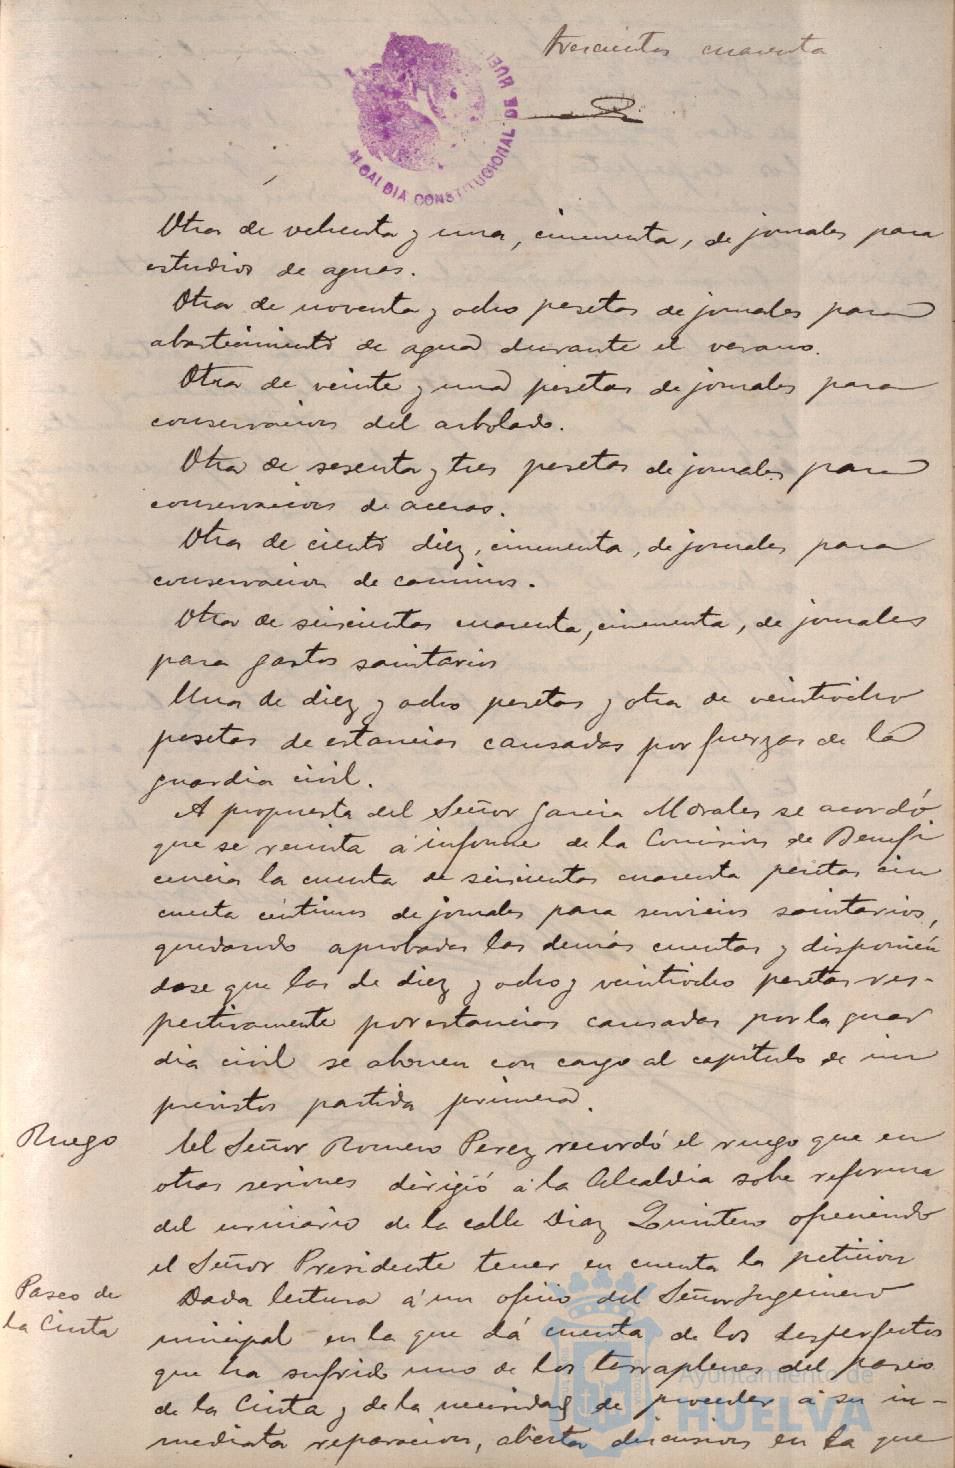 trescientos cuarenta
ALCALDIA CONSTITUCIONAL DE HUEL
Otra de ochenta y una, cincuenta, de jornales para
estudios de aguas.
Otra de noventa y ocho pesetas de jornales para
abastecimiento de agua durante el verano.
Otra de veinte y una pesetas de jornales para
conservacion del arbolado.
Otra de sesenta y tres pesetas de jornales para
conservacion de aceras.
Otra de ciento diez, cincuenta, de jornales para
conservacion de caminos.
Otra de seiscientas cuarenta, cincuenta, de jornales
para gastos sanitarios
Una de diez y ocho pesetas y otra de veintiocho
pesetas de estancias causadas por fuerzas de la
guardia civil.
A propuesta del Señor Garcia Morales se acordó
que se remita á informe de la Comision de Benefi
cencia la cuenta de seiscientas cuarenta pesetas cin
cuenta céntimos de jornales para servicios sanitarios,
quedando aprobadas las demás cuentas y disponién
dose que las de diez y ocho y veintiocho pesetas res-
pectivamente por estancias causadas por la guar
dia civil se abonen con cargo al capitulo de im
previstos partida primera.
Ruego
El Señor Romero Perez recordó el ruego que en
otras sesiones dirigió á la Alcaldia sobre reforma
del urinario de la calle Diaz Quintero ofreciendo
el Señor Presidente tener en cuenta la peticion
Paseo de
la Cinta
Dada lectura á un oficio del Señor Ingeniero
municipal en la que dá cuenta de los desperfectos
que ha sufrido uno de los terraplenes del paseo
de la Cinta y de la necesidad de proceder á su in-
mediata reparacion, abierta discusion en la que
Ayuntamiento de
HUELVA